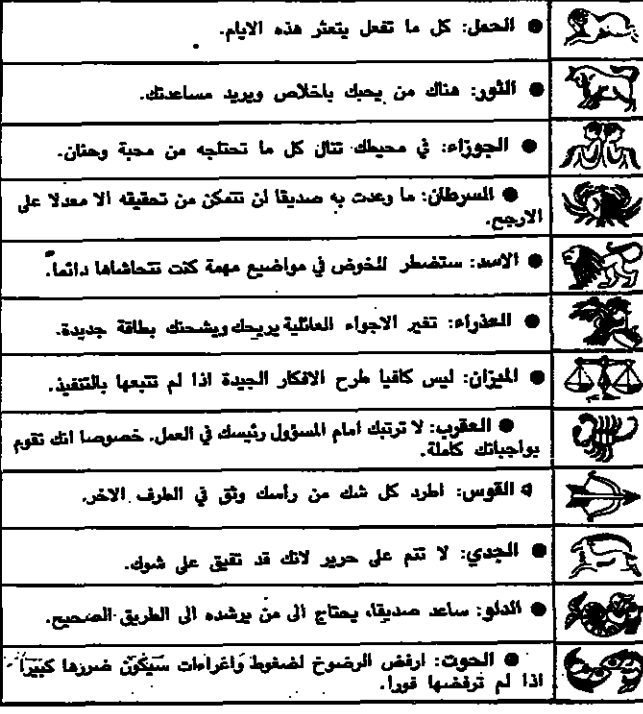 ● الحمل: كل ما تفعل يتعثر هذه الايام.
● الثور: هناك من يحبك باخلاص ويريد مساعدتك.
● الجوزاء: في محيطك تنال كل ما تحتاجه من محبة وحنان.
● السرطان: ما وعدت به صديقا لن تتمكن من تحقيقه الا معدلا على
الارجح.
● الاسد: ستضطر للخوض في مواضيع مهمة كنت تتحاشاها دائما.
● العذراء: تغير الاجواء العائلية يريحك ويشحنك بطاقة جديدة.
● الميزان: ليس كافيا طرح الافكار الجيدة اذا لم تتبعها بالتنفيذ.
● العقرب: لا ترتبك امام المسؤول رئيسك في العمل. خصوصا انك تقوم
بواجباتك كاملة.
● القوس: اطرد كل شك من رأسك وثق في الطرف الاخر.
● الجدي: لا تنم على حرير لانك قد تفيق على شوك.
● الدلو: ساعد صديقا، يحتاج الى من يرشده الى الطريق الصحيح.
● الحوت: ارفض الرضوخ لضغوط واغراءات سيكون ضررها كبيرا
اذا لم ترفضها فورا.